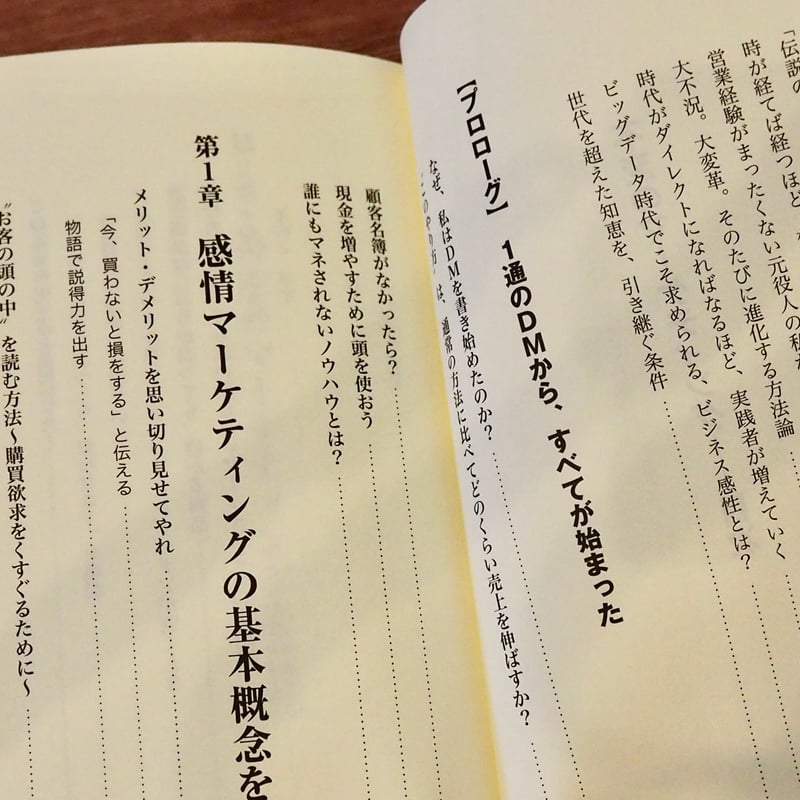 「伝説の
時が経てば経つほど、
営業経験がまったくない元役人の私が
大不況。大変革。そのたびに進化する方法論
時代がダイレクトになればなるほど、実践者が増えていく
ビッグデータ時代でこそ求められる、ビジネス感性とは?
世代を超えた知恵を、引き継ぐ条件
【プロローグ】 1通のDMから、すべてが始まった
なぜ、私はDMを書き始めたのか?
のやり方”は、通常の方法に比べてどのくらい売上を伸ばすか?
顧客名簿がなかったら?
現金を増やすために頭を使おう
誰にもマネされないノウハウとは?
第1章 感情マーケティングの基本概念を
メリット・デメリットを思い切り見せてやれ
「今、買わないと損をする」と伝える
物語で説得力を出す
“お客の頭の中”を読む方法~購買欲求をくすぐるために~